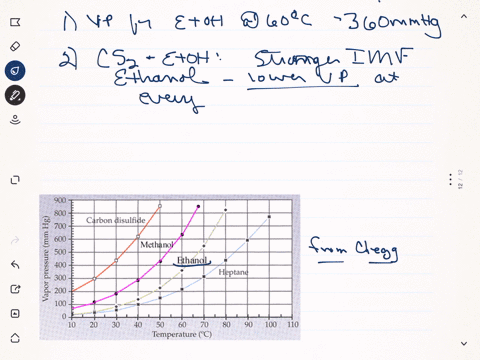 1) VP for EtOH @ 60°C ~360mmHg
2) CS2 - EtOH: Stronger IMF
Ethanol - lower VP at
every
12 / 12
900
800
700
600
500
400
300
200
100
0
Vapor pressure (mm Hg)
Carbon disulfide
Methanol
Ethanol
Heptane
10 20 30 40 50 60 70 80 90 100 110
Temperature (°C)
from Chegg